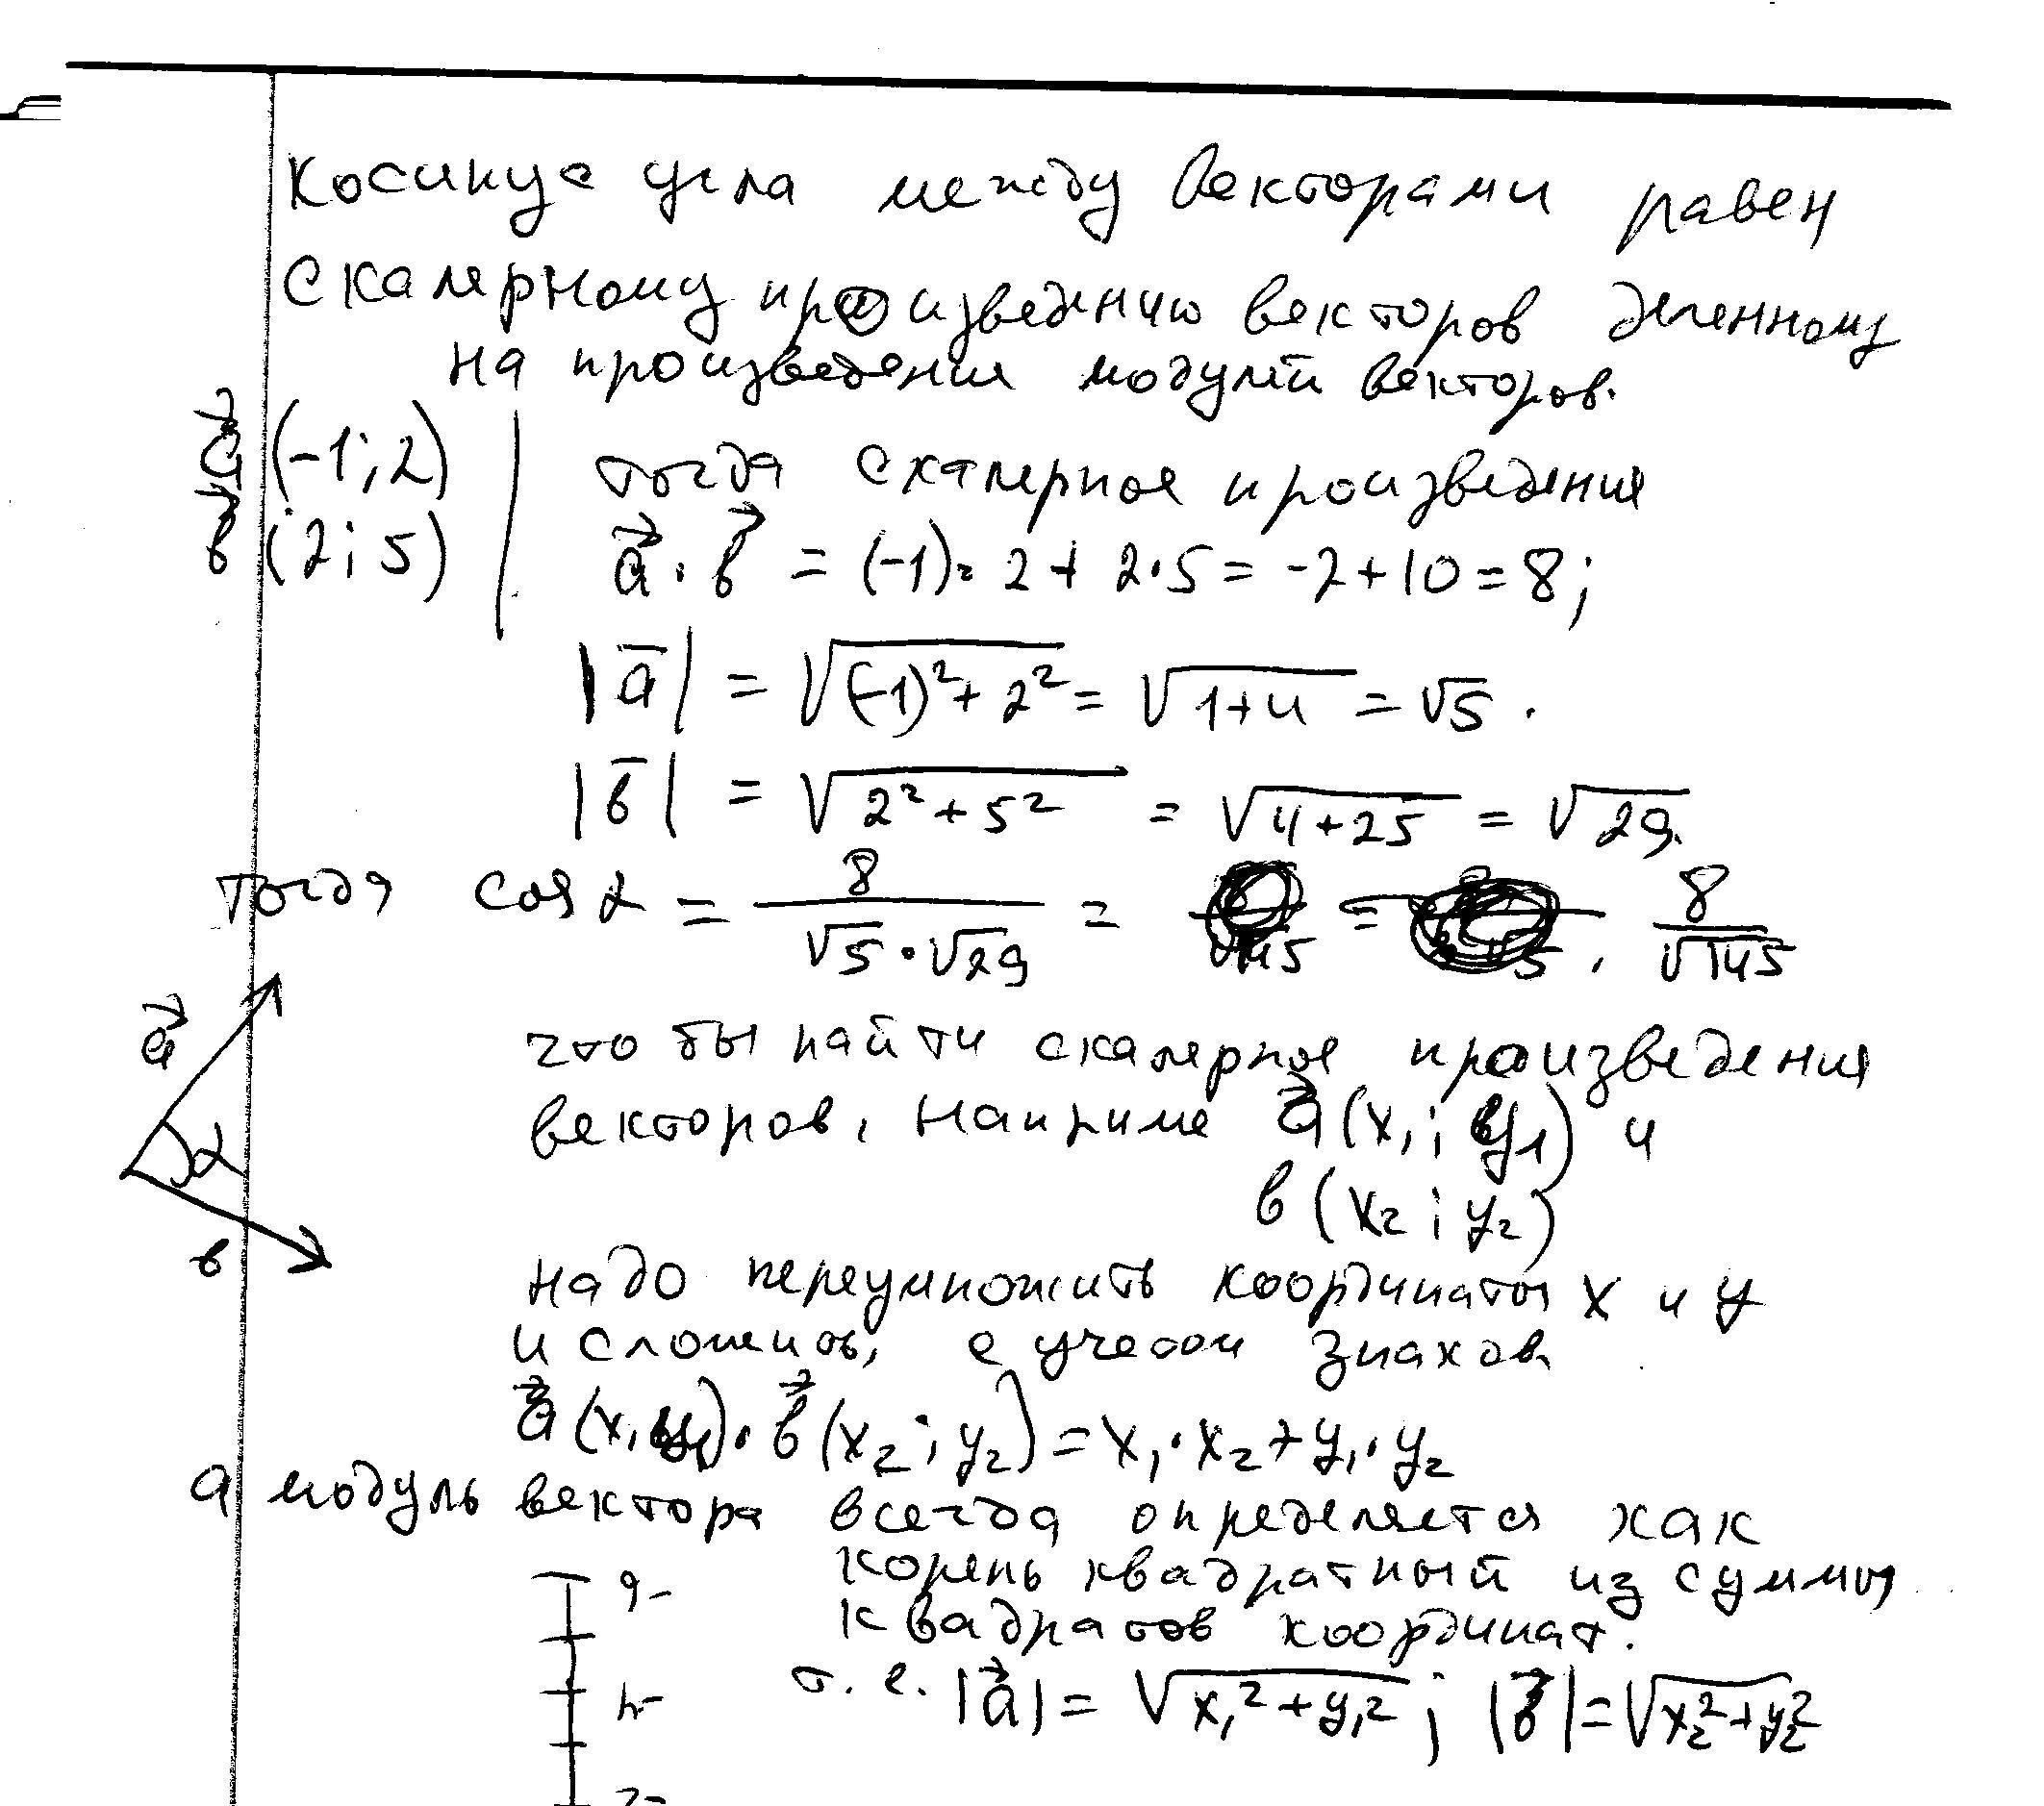 косинус угла между векторами равен
скалерному произведению векторов деленному
на произведения модулей векторов.
a⃗ (-1; 2)
в⃗ (2; 5)
тогда скалерное произведения
a⃗ · в⃗ = (-1) · 2 + 2 · 5 = -2 + 10 = 8;
|a̅| = √((-1)² + 2²) = √(1+4) = √5 .
|в̅| = √(2² + 5²) = √(4+25) = √29.
тогда cos α = 8/(√5 · √29) = 8/√145
a⃗
α
в
что бы найти скалерное произведения
векторов, наприме a⃗ (x₁; y₁) и
в (x₂; y₂)
надо переумножить координаты x и y
и сложить, с учетом знаков
a⃗ (x₁ y₁) · в⃗ (x₂; y₂) = x₁ · x₂ + y₁ · y₂
а модуль вектора всегда определяется как
корень квадратный из суммы
квадратов координат.
т. е. |a⃗| = √(x₁² + y₁²) ; |в⃗| = √(x₂² + y₂²)